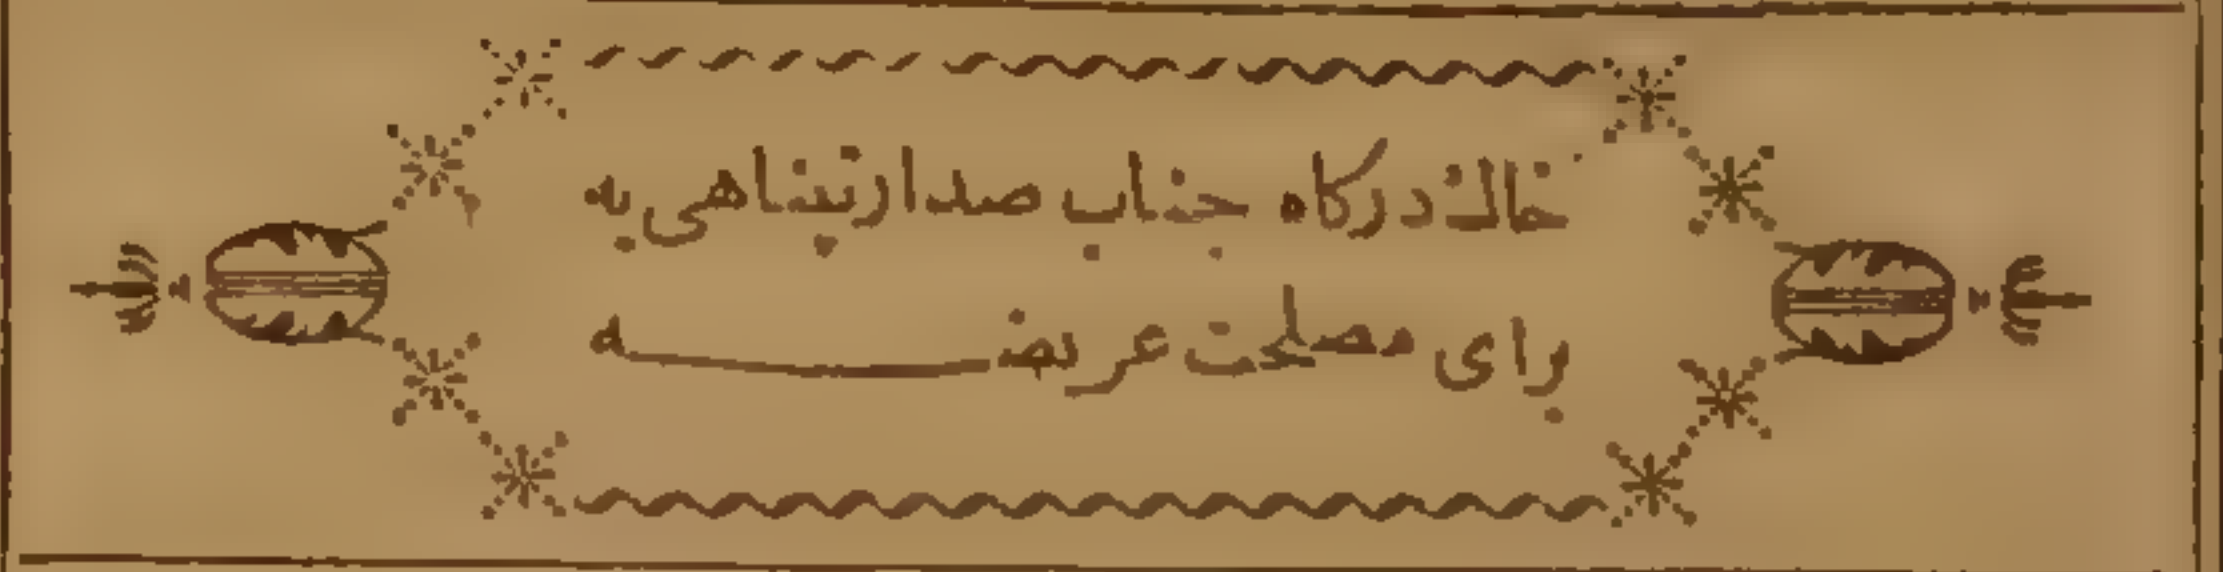 خاك دركاه جناب صدارتپناهی یه
برای مصلحت عریضه